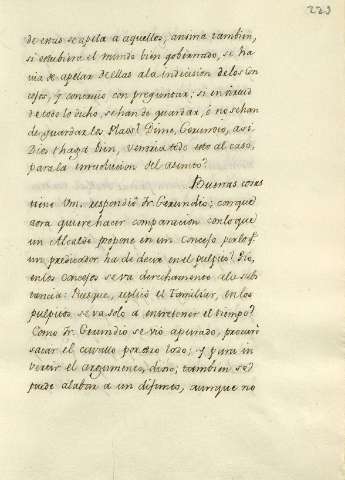 223
de envio se apela a aquellos; ansina tambien,
si estubiera el mundo bien gobernado, se ha
via de apelar de ellas a la indecision de los con
cejos, y conservio con preguntar: si en virtud
de todo lo dicho, se han de guardar, ó no se han
de guardar los Placet? Dime, Gerundio, asi
Dios t haga bien, vendria todo esto al caso,
para la inresolucion del asunto?
Buenas cosas
tiene Vm. respondió fr. Gerundio; con que
aora quiere hacer comparacion con lo que
un Alcalde propone en un Concejo por lo q.
un predicador ha de decir en el pulpito? Pío,
en los Concejos se va derechamente a la sub
tancia: Pues que, replicó el Familiar, en los
pulpitos se va solo a entretener el tiempo?
Como fr. Gerundio se vió apurado, procuró
sacar el cavallo por otro lodo; y para in
vertir el argumento, dixo; tambien se
puede alabar a un difunto, aunque no